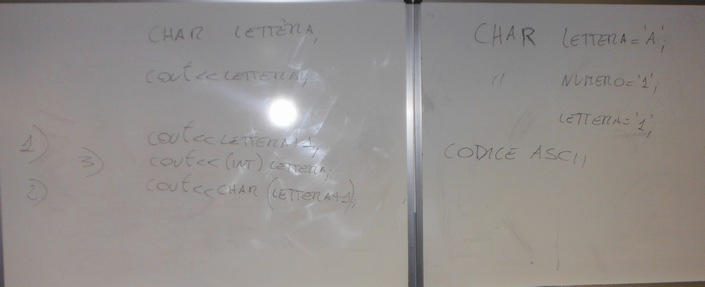 CHAR LETTERA;
COUT<<LETTERA;
1) COUT<<LETTERA+1;
3) COUT<<(INT) LETTERA;
2) COUT<<CHAR(LETTERA+1);
CHAR LETTERA='A';
" NUMERO='1';
LETTERA='1';
CODICE ASCII